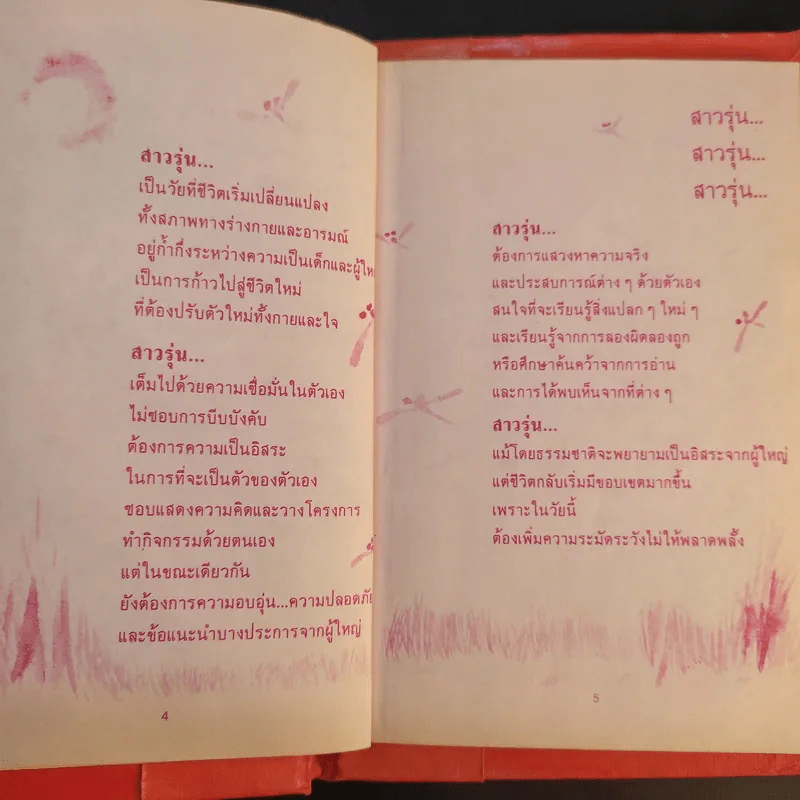 สาวรุ่น...
เป็นวัยที่ชีวิตเริ่มเปลี่ยนแปลง
ทั้งสภาพทางร่างกายและอารมณ์
อยู่ก้ำกึ่งระหว่างความเป็นเด็กและผู้ให
เป็นการก้าวไปสู่ชีวิตใหม่
ที่ต้องปรับตัวใหม่ทั้งกายและใจ
สาวรุ่น...
เต็มไปด้วยความเชื่อมั่นในตัวเอง
ไม่ชอบการบีบบังคับ
ต้องการความเป็นอิสระ
ในการที่จะเป็นตัวของตัวเอง
ชอบแสดงความคิดและวางโครงการ
ทำกิจกรรมด้วยตนเอง
แต่ในขณะเดียวกัน
ยังต้องการความอบอุ่น...ความปลอดภัย
และข้อแนะนำบางประการจากผู้ใหญ่
4
สาวรุ่น...
สาวรุ่น...
สาวรุ่น...
สาวรุ่น...
ต้องการแสวงหาความจริง
และประสบการณ์ต่าง ๆ ด้วยตัวเอง
สนใจที่จะเรียนรู้สิ่งแปลก ๆ ใหม่ ๆ
และเรียนรู้จากการลองผิดลองถูก
หรือศึกษาค้นคว้าจากการอ่าน
และการได้พบเห็นจากที่ต่าง ๆ
สาวรุ่น...
แม้โดยธรรมชาติจะพยายามเป็นอิสระจากผู้ใหญ่
แต่ชีวิตกลับเริ่มมีขอบเขตมากขึ้น
เพราะในวัยนี้
ต้องเพิ่มความระมัดระวังไม่ให้พลาดพลั้ง
5